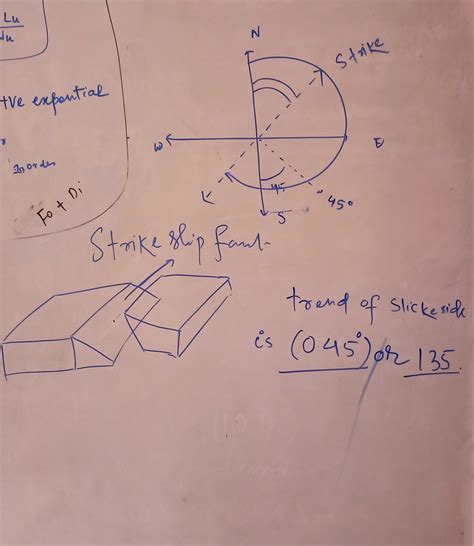 Lu
Nu
+ve expontial
Inorder
Fo + Di
N
Strike
W
E
45
45°
S
Strike slip fault
trend of slickeside
is (045°) or 135